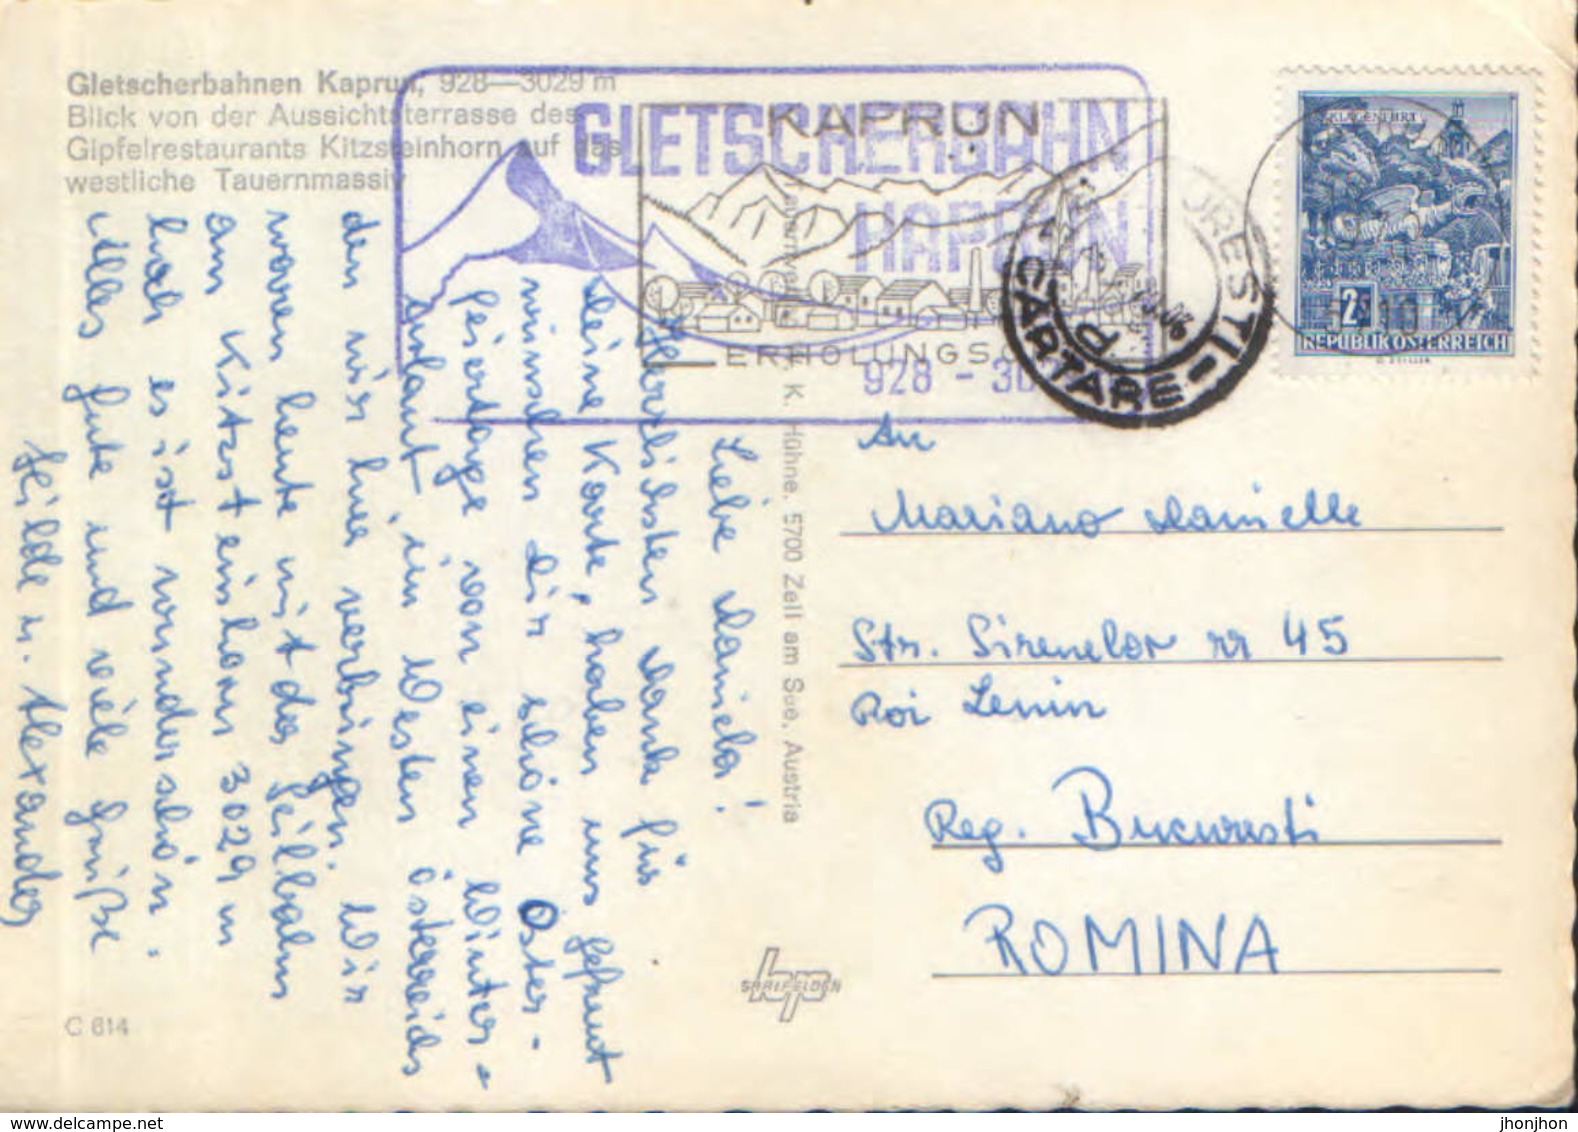 Gletscherbahnen Kaprun, 928—3029 m
Blick von der Aussichtsterrasse des
Gipfelrestaurants Kitzsteinhorn auf das
westliche Tauernmassiv
GLETSCHERBAHN
KAPRUN
928 - 30
KAPRUN
ERHOLUNGSO
CARTARE
KLAGENFURT
REPUBLIK ÖSTERREICH
Liebe Daniela!
Herzlichsten Dank für
deine Karte, haben uns gefreut
wünschen dir schöne Oster-
feiertage von einen Winter-
urlaub im Westen österreichs
den wir hier verbringen. Wir
waren heute mit der Seilbahn
am Kitzsteinhorn 3029 m
hoch es ist wunderschön.
Alles gute und viele Grüße
Hilde u. Alexander
K. Hühne, 5700 Zell am See, Austria
An
Mariano Danielle
Str. Sirenelor nr 45
Roi Lenin
Reg. Bucuresti
ROMINA
SAALFELDEN
C 614
www.delcampe.net
jhonjhon